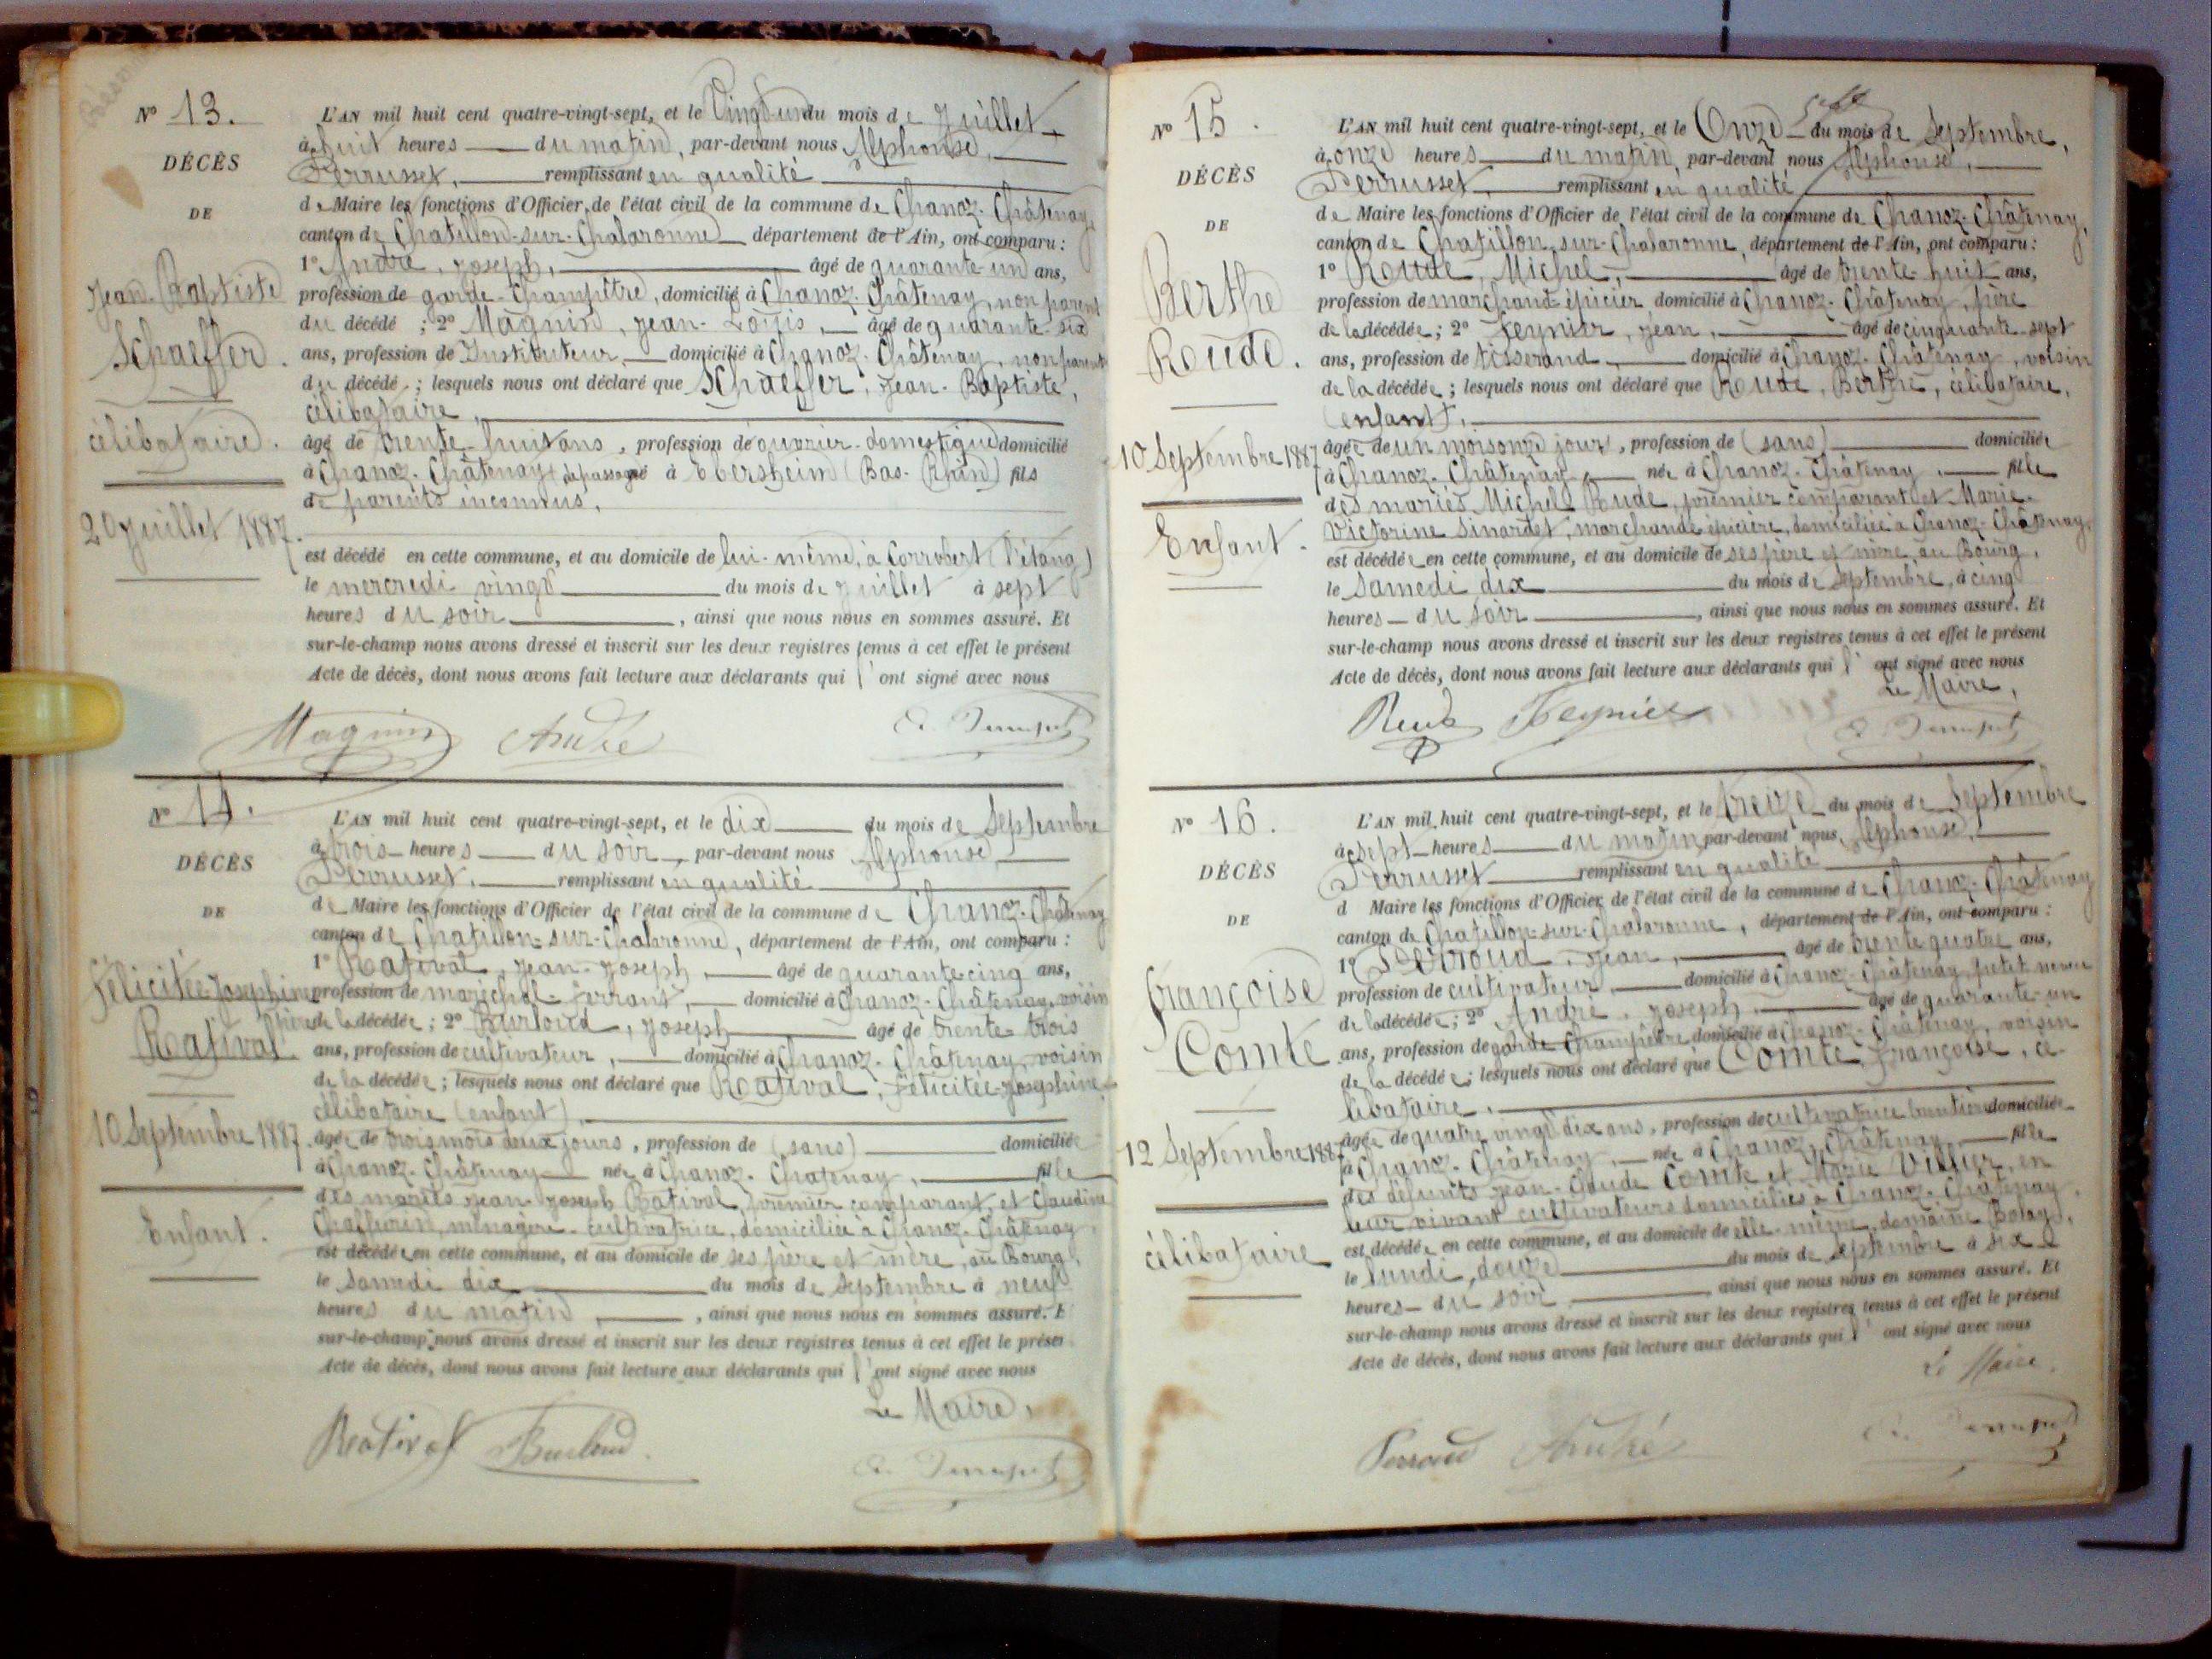 N° 13.
DÉCÈS
DE
Jean-Baptiste
Schaeffer.
célibataire.
20 juillet 1887.
L'AN mil huit cent quatre-vingt-sept, et le Vingt-un du mois de Juillet
à huit heures du matin, par-devant nous Alphonse,
Perrusset, remplissant en qualité
de Maire les fonctions d'Officier de l'état civil de la commune de Chanoz-Châtenay,
canton de Chatillon-sur-Chalaronne département de l'Ain, ont comparu :
1° André, Joseph, âgé de quarante-un ans,
profession de garde-champêtre, domicilié à Chanoz-Châtenay, non parent
du décédé ; 2° Magnin, Jean-Louis, âgé de quarante-six
ans, profession de Instituteur, domicilié à Chanoz-Châtenay, non parent
du décédé ; lesquels nous ont déclaré que Schaeffer, Jean-Baptiste,
célibataire,
âgé de trente-huit ans, profession de ouvrier-domestique domicilié
à Chanoz-Châtenay né à Ebersheim (Bas-Rhin) fils
de parents inconnus,
est décédé en cette commune, et au domicile de lui-même, à Corrobert (l'étang)
le mercredi vingt du mois de Juillet à sept
heures du soir, ainsi que nous nous en sommes assuré. Et
sur-le-champ nous avons dressé et inscrit sur les deux registres tenus à cet effet le présent
Acte de décès, dont nous avons fait lecture aux déclarants qui l'ont signé avec nous
Magnin André
N° 14.
DÉCÈS
DE
Félicitée-Josephine
Rativat
10 Septembre 1887.
Enfant.
L'AN mil huit cent quatre-vingt-sept, et le dix du mois de Septembre
à trois heures du soir, par-devant nous Alphonse,
Perrusset, remplissant en qualité
de Maire les fonctions d'Officier de l'état civil de la commune de Chanoz-Châtenay
canton de Chatillon-sur-Chalaronne, département de l'Ain, ont comparu :
1° Rativat, Jean-Joseph, âgé de quarante-cinq ans,
profession de maréchal-ferrant, domicilié à Chanoz-Châtenay, voisin
père de la décédée ; 2° Burloud, Joseph âgé de trente-trois
ans, profession de cultivateur, domicilié à Chanoz-Châtenay, voisin
de la décédée ; lesquels nous ont déclaré que Rativat, Félicitée-Josephine,
célibataire (enfant),
âgée de trois mois deux jours, profession de (sans) domiciliée
à Chanoz-Châtenay née à Chanoz-Châtenay, fille
des mariés Jean-Joseph Rativat, premier comparant, et Claudine
ménagère-cultivatrice, domiciliée à Chanoz-Châtenay,
est décédée en cette commune, et au domicile de ses père et mère, au Bourg,
le samedi dix du mois de Septembre à neuf
heures du matin, ainsi que nous nous en sommes assuré. E
sur-le-champ nous avons dressé et inscrit sur les deux registres tenus à cet effet le prése
Acte de décès, dont nous avons fait lecture aux déclarants qui l'ont signé avec nous
Le Maire,
Rativat Burloud
N° 15.
DÉCÈS
DE
Berthe
Roude.
10 Septembre 1887
Enfant.
L'AN mil huit cent quatre-vingt-sept, et le Onze du mois de Septembre,
à onze heures du matin, par-devant nous Alphonse,
Perrusset, remplissant en qualité
de Maire les fonctions d'Officier de l'état civil de la commune de Chanoz-Châtenay,
canton de Chatillon-sur-Chalaronne, département de l'Ain, ont comparu :
1° Roude, Michel, âgé de trente-huit ans,
profession de marchand-épicier domicilié à Chanoz-Châtenay, père
de la décédée ; 2° Feynier, Jean, âgé de cinquante-sept
ans, profession de tisserand, domicilié à Chanoz-Châtenay, voisin
de la décédée ; lesquels nous ont déclaré que Roude, Berthe, célibataire,
(enfant),
âgée de un mois onze jours, profession de (sans) domiciliée
à Chanoz-Châtenay, née à Chanoz-Châtenay, fille
des mariés Michel Roude, premier comparant et Marie-
Victorine Sinardet, marchande épicière, domiciliée à Chanoz-Châtenay,
est décédée en cette commune, et au domicile de ses père et mère, au Bourg,
le Samedi dix du mois de Septembre, à cinq
heures du soir, ainsi que nous nous en sommes assuré. Et
sur-le-champ nous avons dressé et inscrit sur les deux registres tenus à cet effet le présent
Acte de décès, dont nous avons fait lecture aux déclarants qui l'ont signé avec nous
Le Maire,
Feynier
N° 16.
DÉCÈS
DE
Françoise
Comte
12 Septembre 1887
célibataire
L'AN mil huit cent quatre-vingt-sept, et le treize du mois de Septembre
à sept heures du matin par-devant nous, Alphonse,
Perrusset remplissant en qualité
d Maire les fonctions d'Officier de l'état civil de la commune de Chanoz-Châtenay
canton de Chatillon-sur-Chalaronne, département de l'Ain, ont comparu :
1° Perroud, Jean, âgé de trente quatre ans,
profession de cultivateur, domicilié à Chanoz-Châtenay, petit neveu
de la décédée ; 2° André, Joseph, âgé de quarante-un
ans, profession de garde-champêtre domicilié à Chanoz-Châtenay, voisin
de la décédée ; lesquels nous ont déclaré que Comte Françoise, cé-
libataire,
âgée de quatre vingt dix ans, profession de cultivatrice domiciliée
à Chanoz-Châtenay, née à Chanoz-Châtenay, fille
des défunts Jean-Claude Comte et Marie Villier, en
leur vivant cultivateurs domiciliés à Chanoz-Châtenay,
est décédée en cette commune, et au domicile de elle-même, domaine
le lundi, douze du mois de Septembre à six
heures du soir, ainsi que nous nous en sommes assuré. Et
sur-le-champ nous avons dressé et inscrit sur les deux registres tenus à cet effet le présent
Acte de décès, dont nous avons fait lecture aux déclarants qui l'ont signé avec nous
Le Maire.
Perroud André